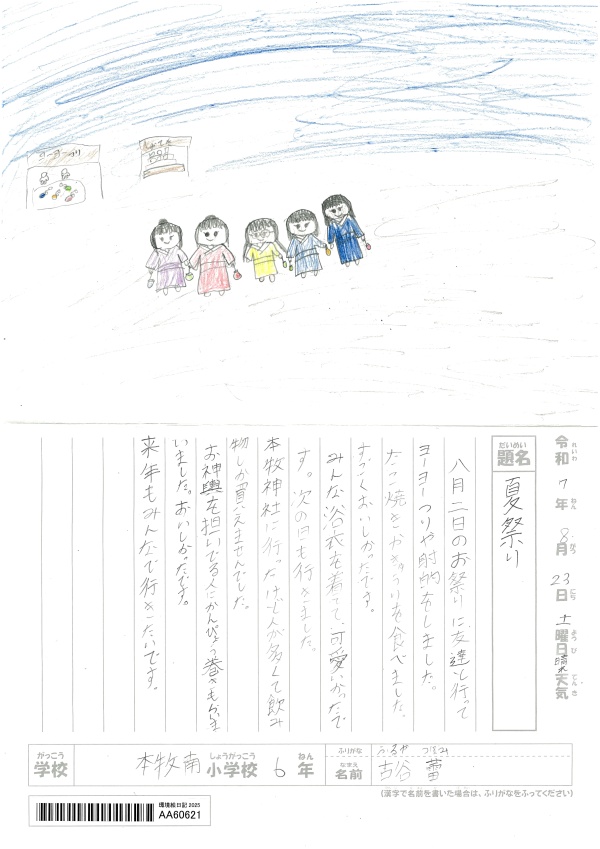 ヨーヨーつり
令和7年8月23日土曜日天気晴れ
れいわ ねん がつ にち ようび てんき
だいめい
題名
夏祭り
八月二日のお祭りに友達と行って
ヨーヨーつりや射的をしました。
たこ焼きやきゅうりも食べました。
すっごくおいしかったです。
みんな浴衣を着てて、可愛いかったで
す。次の日も行きました。
本牧神社に行ったけど人が多くて飲み
物しか買えませんでした。
お神輿を担いでる人にかんぴょう巻きもらい
いました。おいしかったです。
来年もみんなで行きたいです。
がっこう しょうがっこう ねん
学校 本牧南小学校 6年
ふりがな ふるや つぼみ
なまえ
名前 古谷 蕾
(漢字で名前を書いた場合は、ふりがなをふってください)
環境絵日記 2025
AA60621